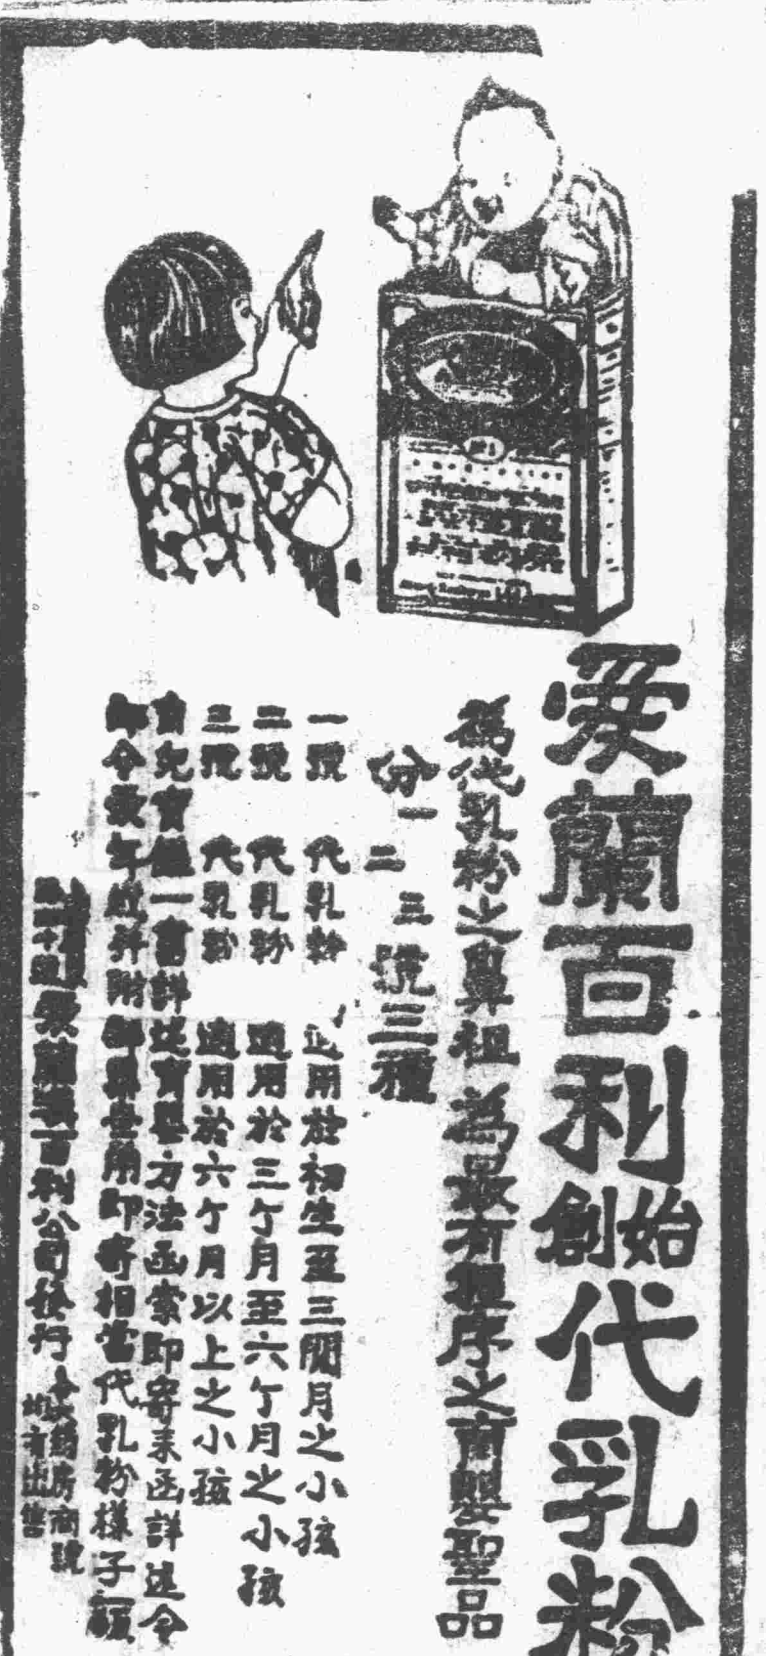 愛蘭百利
始創
代乳粉
為代乳粉之鼻祖 為最有程序之育嬰聖品
分一二三號三種
一號 代乳粉 適用於初生至三閱月之小孩
二號 代乳粉 適用於三个月至六个月之小孩
三號 代乳粉 適用於六个月以上之小孩
育兒寶鑑一書詳述育嬰方法函索即寄來函詳述令
郎令嬡年歲并附郵票壹角即寄相當代乳粉樣子
愛蘭漢百利公司發行
各大药房商號
均有出售